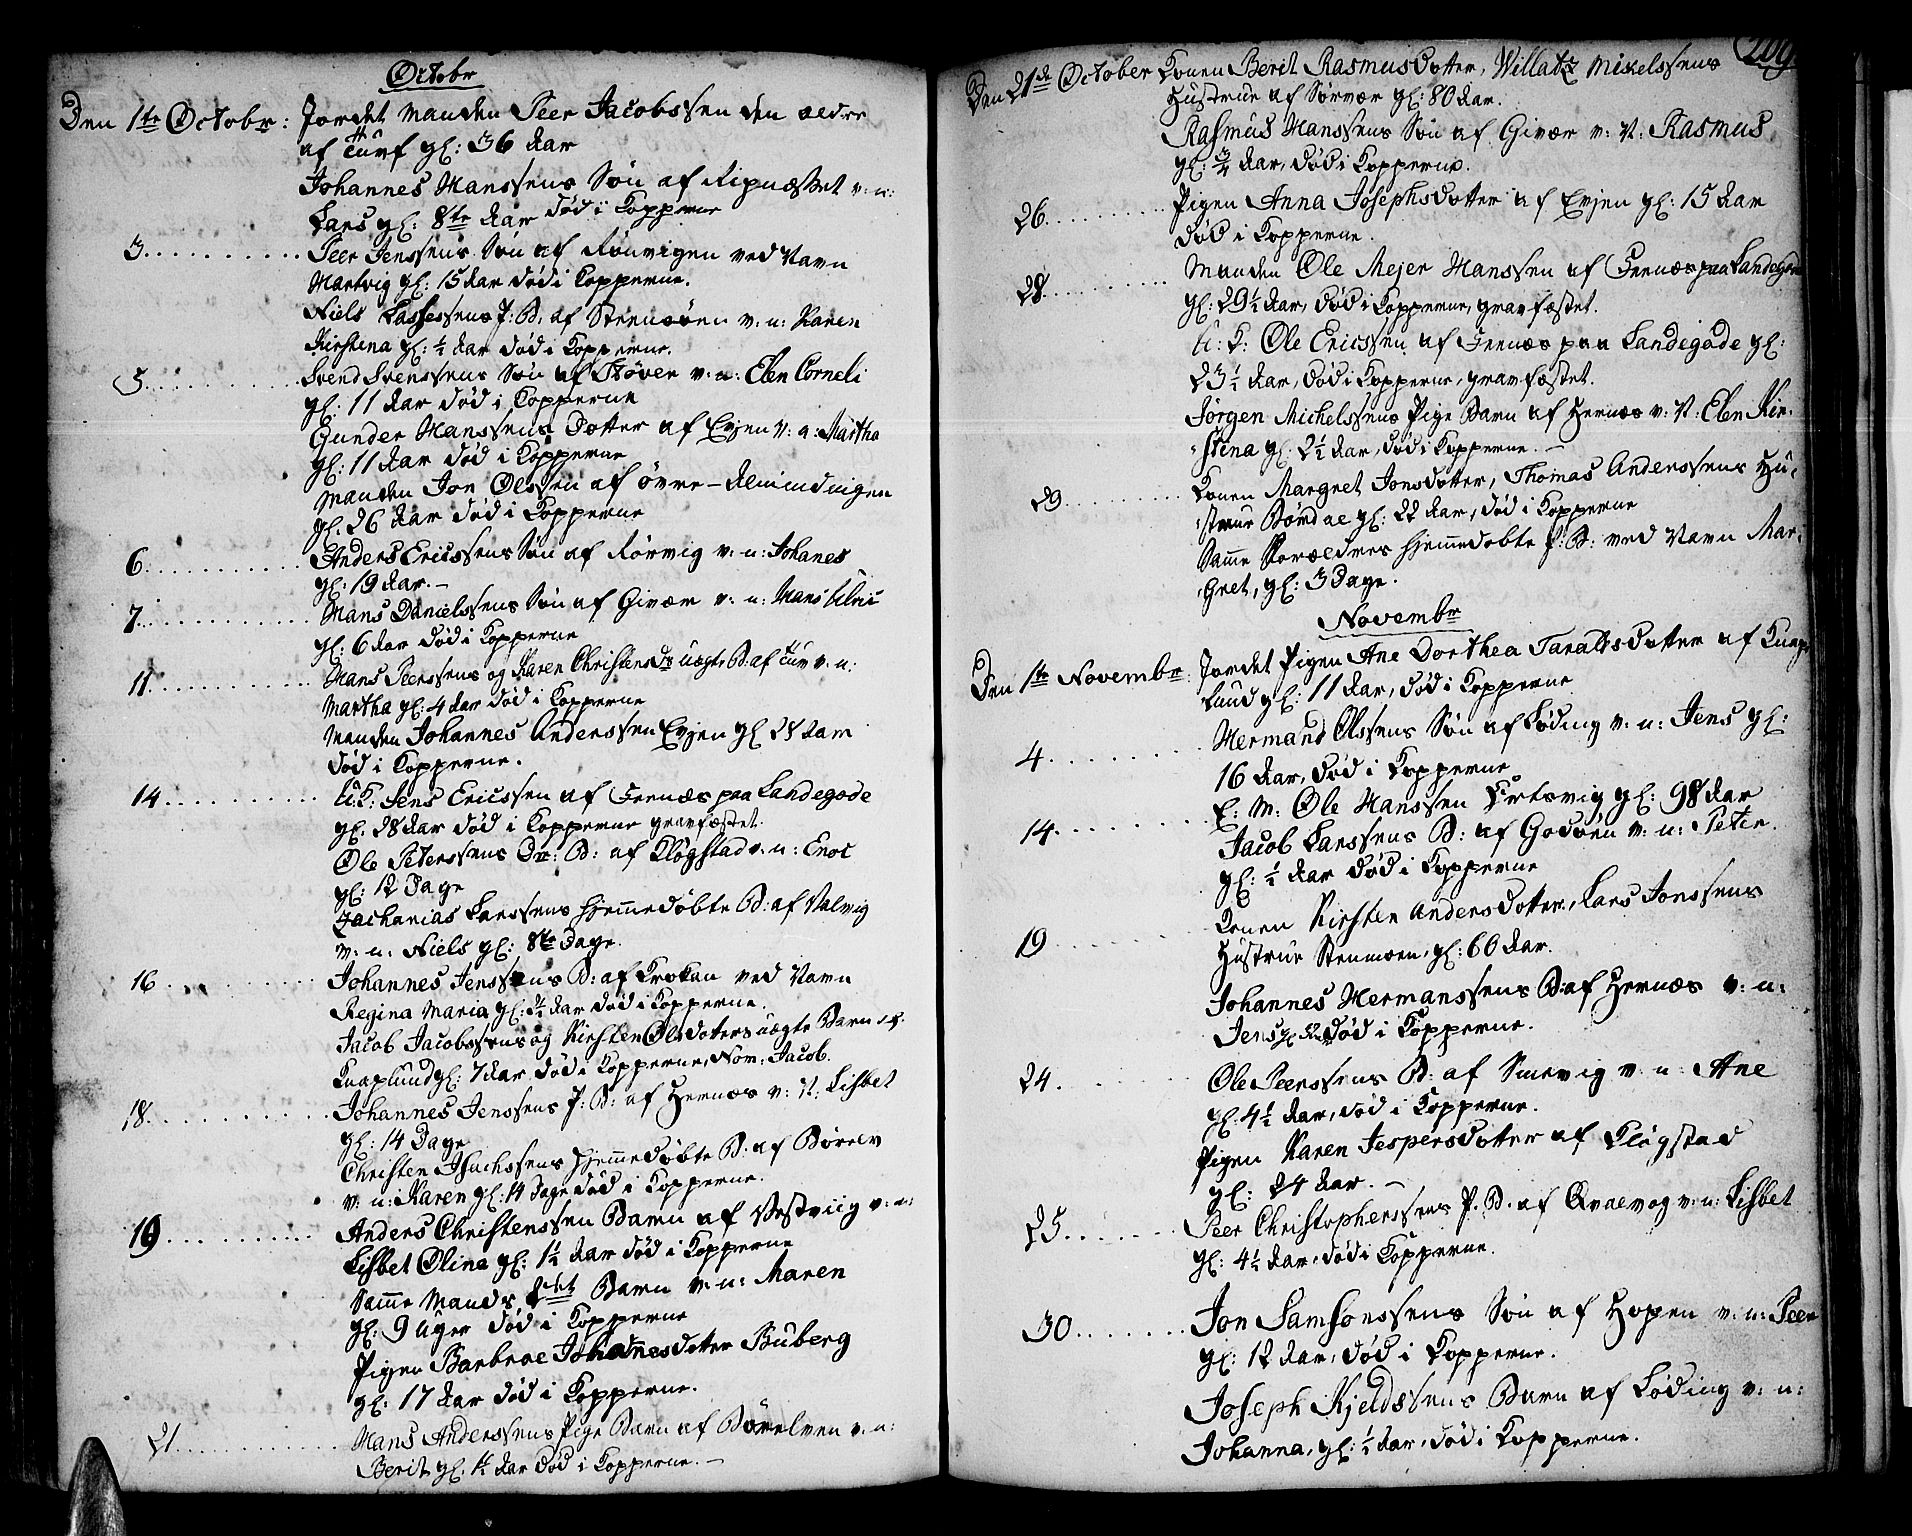 Octobr
Den 1te Octobr: Jordet Manden Peer Jacobssen den ældre
af Tuv gl: 36 Aar
Johannes Hanssens Søn af Ripnæsset v: n:
Lars gl: 8te Aar død i Kopperne
3. Peer Jenssens Søn af Rønvigen ved Navn
Hartvig gl: 15 Aar død i Kopperne.
Niels Lassessens P: B: af Strenøen v: n: Karen
Kirstena gl: ½ Aar død i Kopperne.
5. Svend Svenssens Søn af Støver v: n: Eben Corneli
gl: 11 Aar død i Kopperne
Gunder Hanssens Dotter af Evjen v: n: Martha
gl: 11 Aar død i Kopperne
Manden Jon Olssen af øvre-Almindingen
gl. 26 Aar død i Kopperne
6. Anders Ericssens Søn af Rørvig v: n: Johanes
gl: 19 Aar. –
7. Hans Danielssens Søn af Givær v: n: Hans Ulric
gl: 6 Aar død i Kopperne
11. Hans Peerssens og Karen Christensdr uægte B: af Tuv v: n:
Martha gl: 4 Aar død i Kopperne
Manden Johannes Anderssen Evjen gl 28 Aar
død i Kopperne.
14. U: K: Jens Ericssen af Fernæs paa Landegode
gl. 28 Aar død i Kopperne gravfæstet.
Ole Peterssens Dr: B: af Kløgstad v: n: Enoc
gl: 12 Dage
Zacharias Larssens hjemmedøbte B: af Valvig
v: n: Niels gl: 8te Dage.
16. Johannes Jenssens B: af Krokan ved Navn
Regina Maria gl: ¾ Aar død i Kopperne.
Jacob Jacobssens og Kirsten Olsdotters uægte Barn af
Knaplund gl: 7 Aar død i Kopperne, Nom: Jacob.
18. Johannes Jenssens P: B: af Hernæs v: N: Lisbet
gl: 14 Dage
Christen Isachssens hjemmedøbte B. af Børelv
v: n: Karen gl: 14 Dage død i Kopperne.
19. Anders Christenssen Barn af Vestviig v: n:
Lisbet Olina gl: 1½ Aar død i Kopperne
Samme Mands Barn v: n: Maren
gl: 9 uger død i Kopperne
Pigen Barbroe Johannesdotter Buberg
gl: 17 Aar død i Kopperne.
21. Hans Anderssens Pige Barn af Børelven v: n:
Berit gl: Aar død i Kopperne. –
209
Den 21de October Konen Berit Rasmusdotter, Willatz Mikelssens
Hustrue af Sørvær gl: 80 Aar.
Rasmus Hanssens Søn af Givær v: N: Rasmus
gl: ¾ Aar, død i Kopperne.
26. Pigen Anna Josephsdotter af Evjen gl: 15 Aar
død i Kopperne.
28. Manden Ole Mejer Hanssen af Fernæs paa Landegode
gl: 29½ Aar, død i Kopperne, gravfæstet.
U: K: Ole Ericssen af Fernæs paa Landegode gl:
23½ Aar, død i Kopperne, gravfæstet.
Jørgen Michelssens Pige Barn af Hernæs v: N: Eben Kir-
stina gl: 2½ Aar, død i Kopperne. –
29. Konen Margret Jonsdotter, Thomas Anderssens Hu-
strue Børdae gl: 22 Aar, død i Kopperne
Samme Forældres hjemmedøbte P: B: ved Navn Mar-
gret, gl: 3 Dage.
Novembr
Den 1te Novembr: Jordet Pigen Ane Dorthea Taraltsdotter af Knap-
lund gl: 11 Aar, død i Kopperne
4. Hermand Olssens Søn af Løding v: n: Jens gl:
16 Aar, død i Kopperne
14. E: M: Ole Hanssen gl: 98 Aar
Jacob Larssens B: af Godøen v: n: Peter.
gl: ½ Aar død i Kopperne
19 Konen Kirsten Andersdotter, Lars Jonssens
Hustrue Stenmoen, gl: 60 Aar.
Johannes Hermanssens B: af Hernæs v: n:
Jens død i Kopperne.
24. Ole Peerssens B: af Smevig v: n: Ane
gl: 4½ Aar, død i Kopperne.
Pigen Karen Jespersdotter af Kløgstad
gl: 24 Aar. –
25. Peer Christopherssens P. B. af Qvalvog v: n: Lisbet
gl: 4½ Aar, død i Kopperne.
30. Jon Samsonssens Søn af Hopen v: n: Peer
gl: 12 Aar, død i Kopperne.
Joseph Kjeldssens Barn af Løding v: n:
Johanna, gl: ½ Aar, død i Kopperne.